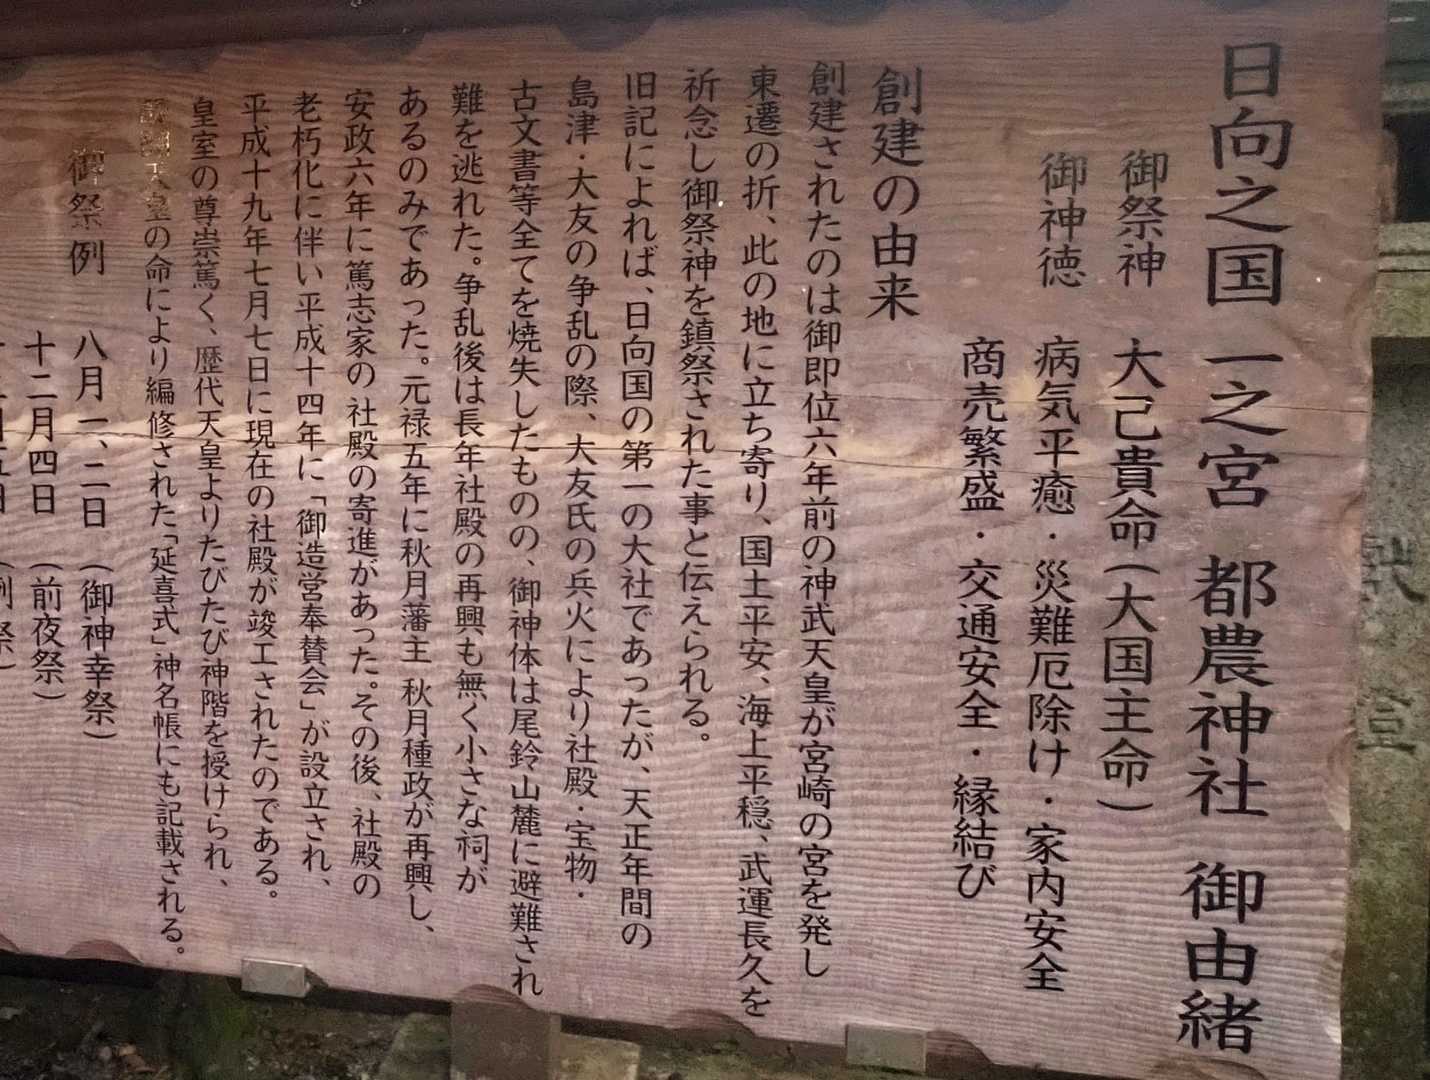 日向之国 一之宮 都農神社 御由緒
御祭神 大己貴命(大国主命)
御神徳 病気平癒・災難厄除け・家内安全
商売繁盛・交通安全・縁結び
創建の由来
創建されたのは御即位六年前の神武天皇が宮崎の宮を発し
東遷の折、此の地に立ち寄り、国土平安、海上平穏、武運長久を
祈念し御祭神を鎮祭された事と伝えられる。
旧記によれば、日向国の第一の大社であったが、天正年間の
島津・大友の争乱の際、大友氏の兵火により社殿・宝物・
古文書等全てを焼失したものの、御神体は尾鈴山麓に避難され
難を逃れた。争乱後は長年社殿の再興も無く小さな祠が
あるのみであった。元禄五年に秋月藩主 秋月種政が再興し、
安政六年に篤志家の社殿の寄進があった。その後、社殿の
老朽化に伴い平成十四年に「御造営奉賛会」が設立され、
平成十九年七月七日に現在の社殿が竣工されたのである。
皇室の尊崇篤く、歴代天皇よりたびたび神階を授けられ、
醍醐天皇の命により編修された「延喜式」神名帳にも記載される。
御祭例 八月一、二日 (御神幸祭)
十二月四日 (前夜祭)